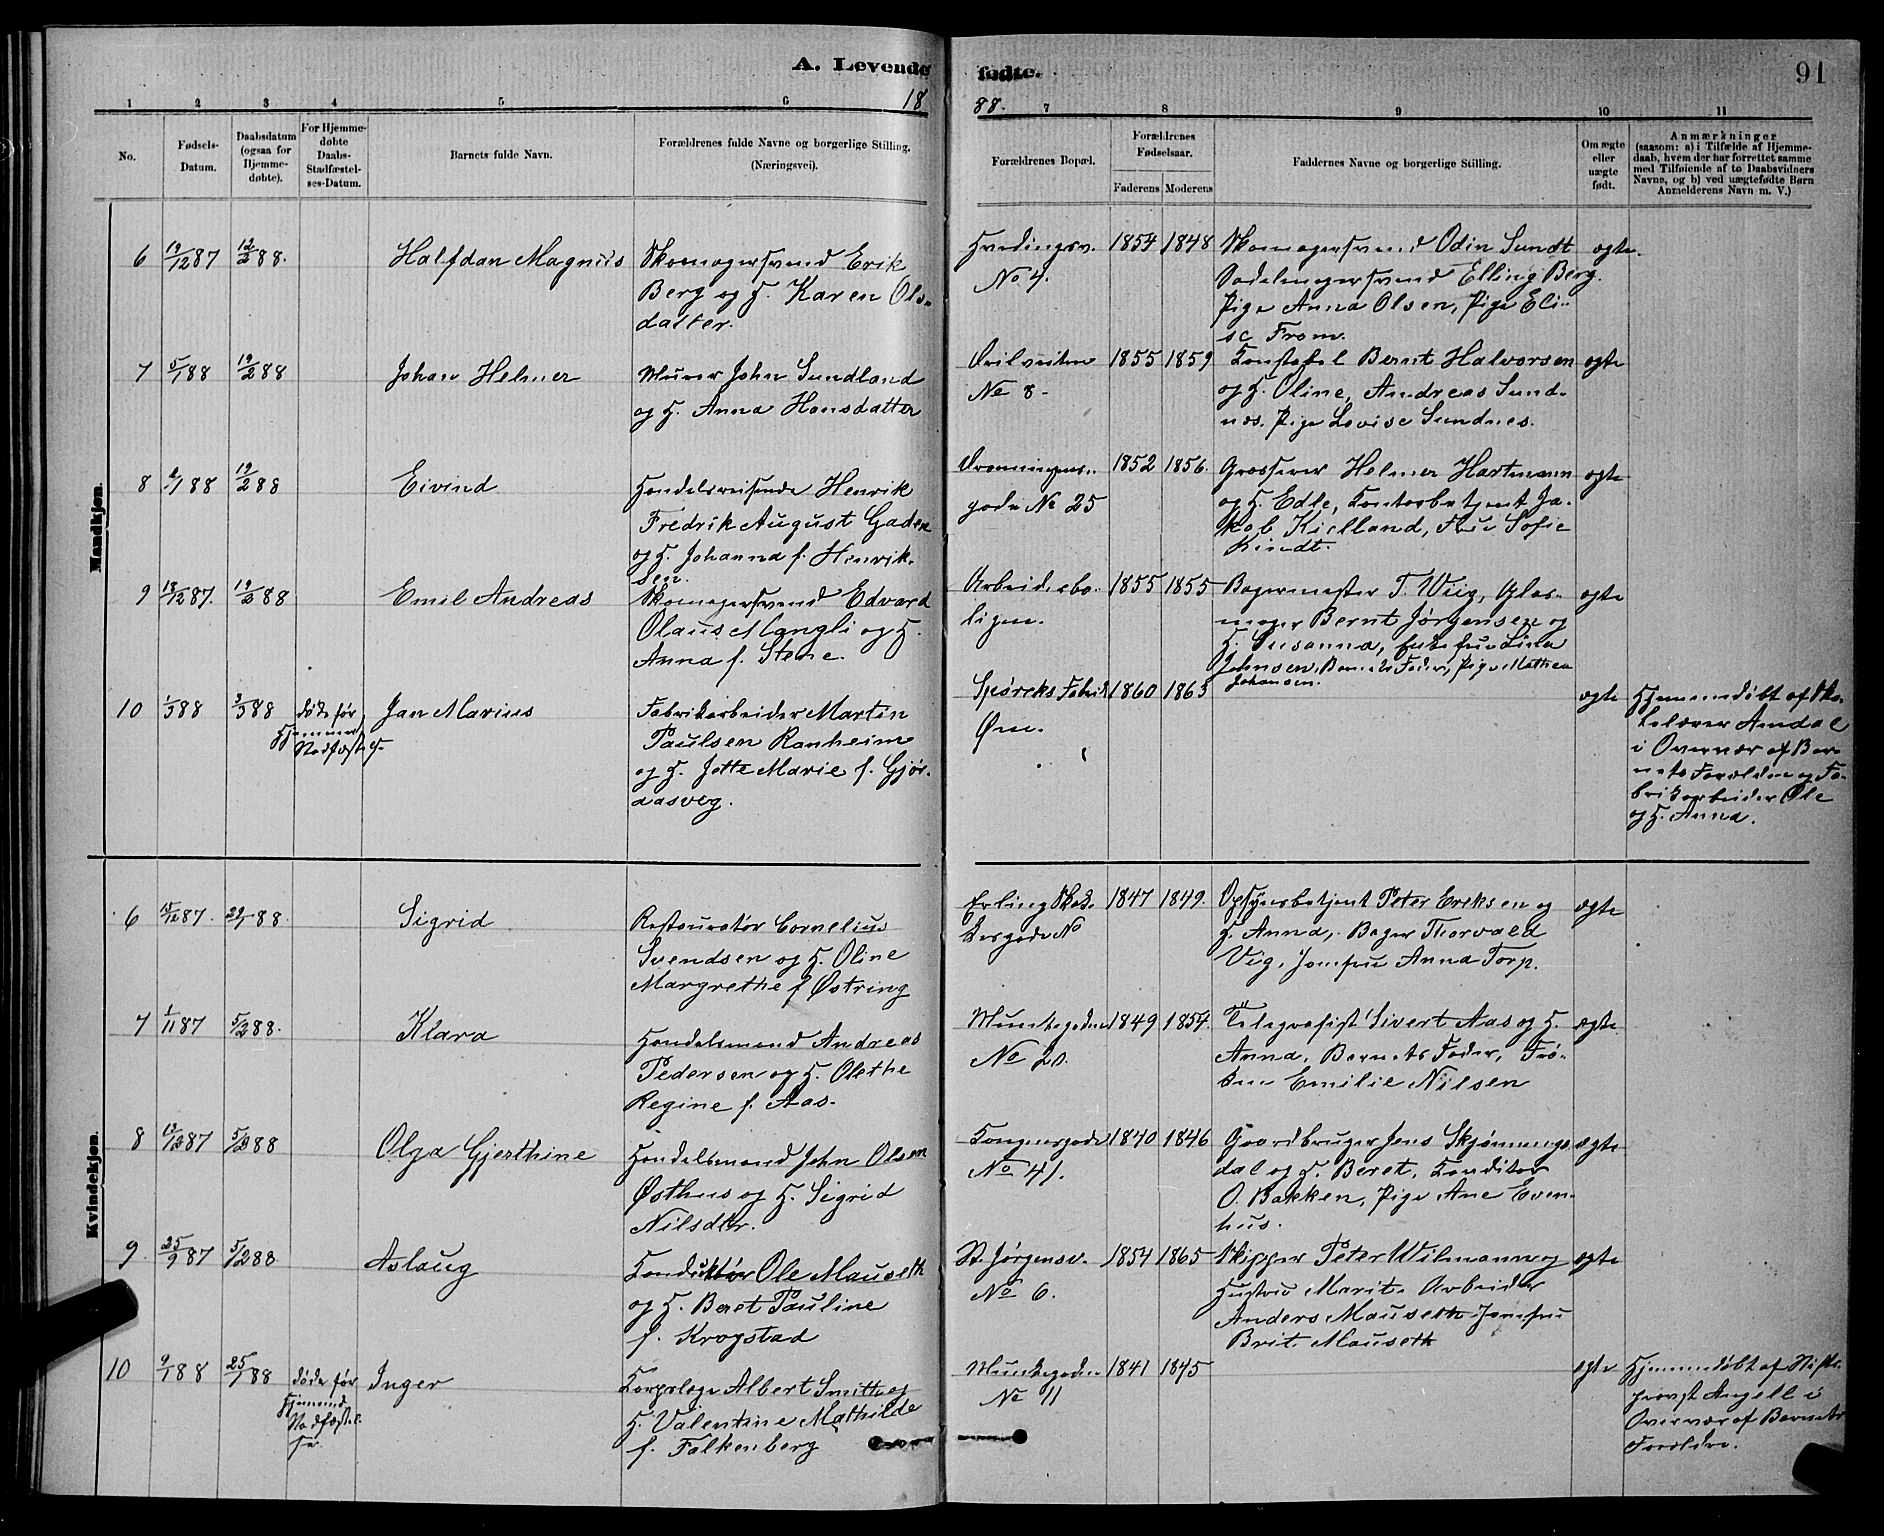 A. Levende fødte.
91
18 88.
1 2 3 4 5 6 7 8 9 10 11
No.
Fødsels-Datum.
Daabsdatum (ogsaa for Hjemme-døbte).
For Hjemme-døbte Daabs-Stadfæstel-ses-Datum.
Barnets fulde Navn.
Forældrenes fulde Navne og borgerlige Stilling. (Næringsvei).
Forældrenes Bopæl.
Forældrenes Fødselsaar.
Faderens Moderens
Faddernes Navne og borgerlige Stilling.
Om ægte eller uægte født.
Anmærkninger
(saasom: a) i Tilfælde af Hjemme-
daab, hvem der har forrettet samme
med Tilføiende af to Daabsvidners
Navne, og b) ved uægtefødte Børn
Anmelderens Navn m. V.)
Mandkjøn.
6 19/12 87 12/2 88. Halfdan Magnus
Skomagersvend Erik
Berg og H. Karen Ols-
datter.
Hvedingsv.
No 4.
1854 1848
Skomagersvend Odin Sundt
Sadelmagersvend Elling Berg.
Pige Anna Olsen, Pige Eli-
se From.
ægte.
7 5/1 88 19/2 88 Johan Helmer
Murer John Sundland
og H. Anna Hansdatter
No 8.
1855 1859
Konstabel Bernt Halvorsen
og H. Oline, Andreas Sund-
næs. Pige Lovise Sundnes.
ægte
8 2/1 88 19/2 88 Eivind
Handelsreisende Henrik
Fredrik August Gaden
og H. Johanna f. Henrik-
sen.
Dronningens-
gade No 25
1852 1856.
Grosserer Helmer Hartmann
og H. Edle, Kontorbetjent Ja-
kob Kielland, Fru Sofie
Kindt.
ægte
9 18/12 87. 19/2 88 Emil Andreas
Skomagersvend Edvard
Olaus Mangli og H.
Anna f. Stene.
Arbeiderbo-
ligen.
1855 1855
Bagermester T. Wiig, Glas-
mager Bernt Jørgensen og
H. Susanna, Enkefru Lina
Johnsen. Barnets Fader, Pige Mathea
Johansen.
ægte
10 1/3 88 3/3 88
døde før
Hjemmed.
Stadfæstelse
Jan Marius
Fabrikarbeider Martin
Paulsen Ranheim
og H. Jette Marie f. Gjør-
aasveg.
Spørcks Fabrik
Øen.
1860 1863
ægte
Hjemmedøbt af Sko-
lelærer Amdal
i Overvær af Bar-
nets Forældre og Fa-
brikarbeider Ole
og H. Anna.
Kvindekjøn.
6 15/12 87. 29/1 88. Sigrid
Restauratør Cornelius
Svendsen og H. Oline
Margrethe f. Østring
Erling Skak-
kesgade No
1847 1849.
Opsynsbetjent Peter Eriksen og
H. Anna, Bager Thorvald
Viig, Jomfru Anna Torp.
ægte
7 1/11 87 5/2 88. Klara
Handelsmand Andreas
Pedersen og H. Olethe
Regine f. Aas.
Munkegaden
No 20.
1849 1854.
Telegrafist Sivert Aas og H.
Anna, Barnets Fader, Frø-
ken Emilie Nilsen
ægte
8 13/12 87 5/2 88 Olga Gjerthine
Handelsmand John Olsen
Østhus og H. Sigrid
Nilsdtr.
Kongensgade
No 41.
1840 1846
Gaardbruger Jens Skjønnings-
dal og H. Beret, Konditor
O. Bakken, Pige Ane Even-
hus.
ægte
9. 25/9 87 5/2 88 Aslaug
Konduktør Ole Mauseth
og H. Beret Pauline
f. Krogstad
St. Jørgensv.
No 6.
1854 1865
Skipper Peter Wilmann og
Hustru Marit. Arbeider
Anders Mauseth Jomfru
Brit. Mauseth
ægte
10 9/1 88 25/1 88
døde før
Hjemmed.
Stadfæstel-
se.
Inger
Korpslæge Albert Smitt og
H. Valentine Mathilde
f. Falkenberg
Munkegaden
No 11
1841 1845
ægte
Hjemmedøbt af Stifts-
provst Angell i
Overvær af Barnets
Forældre.